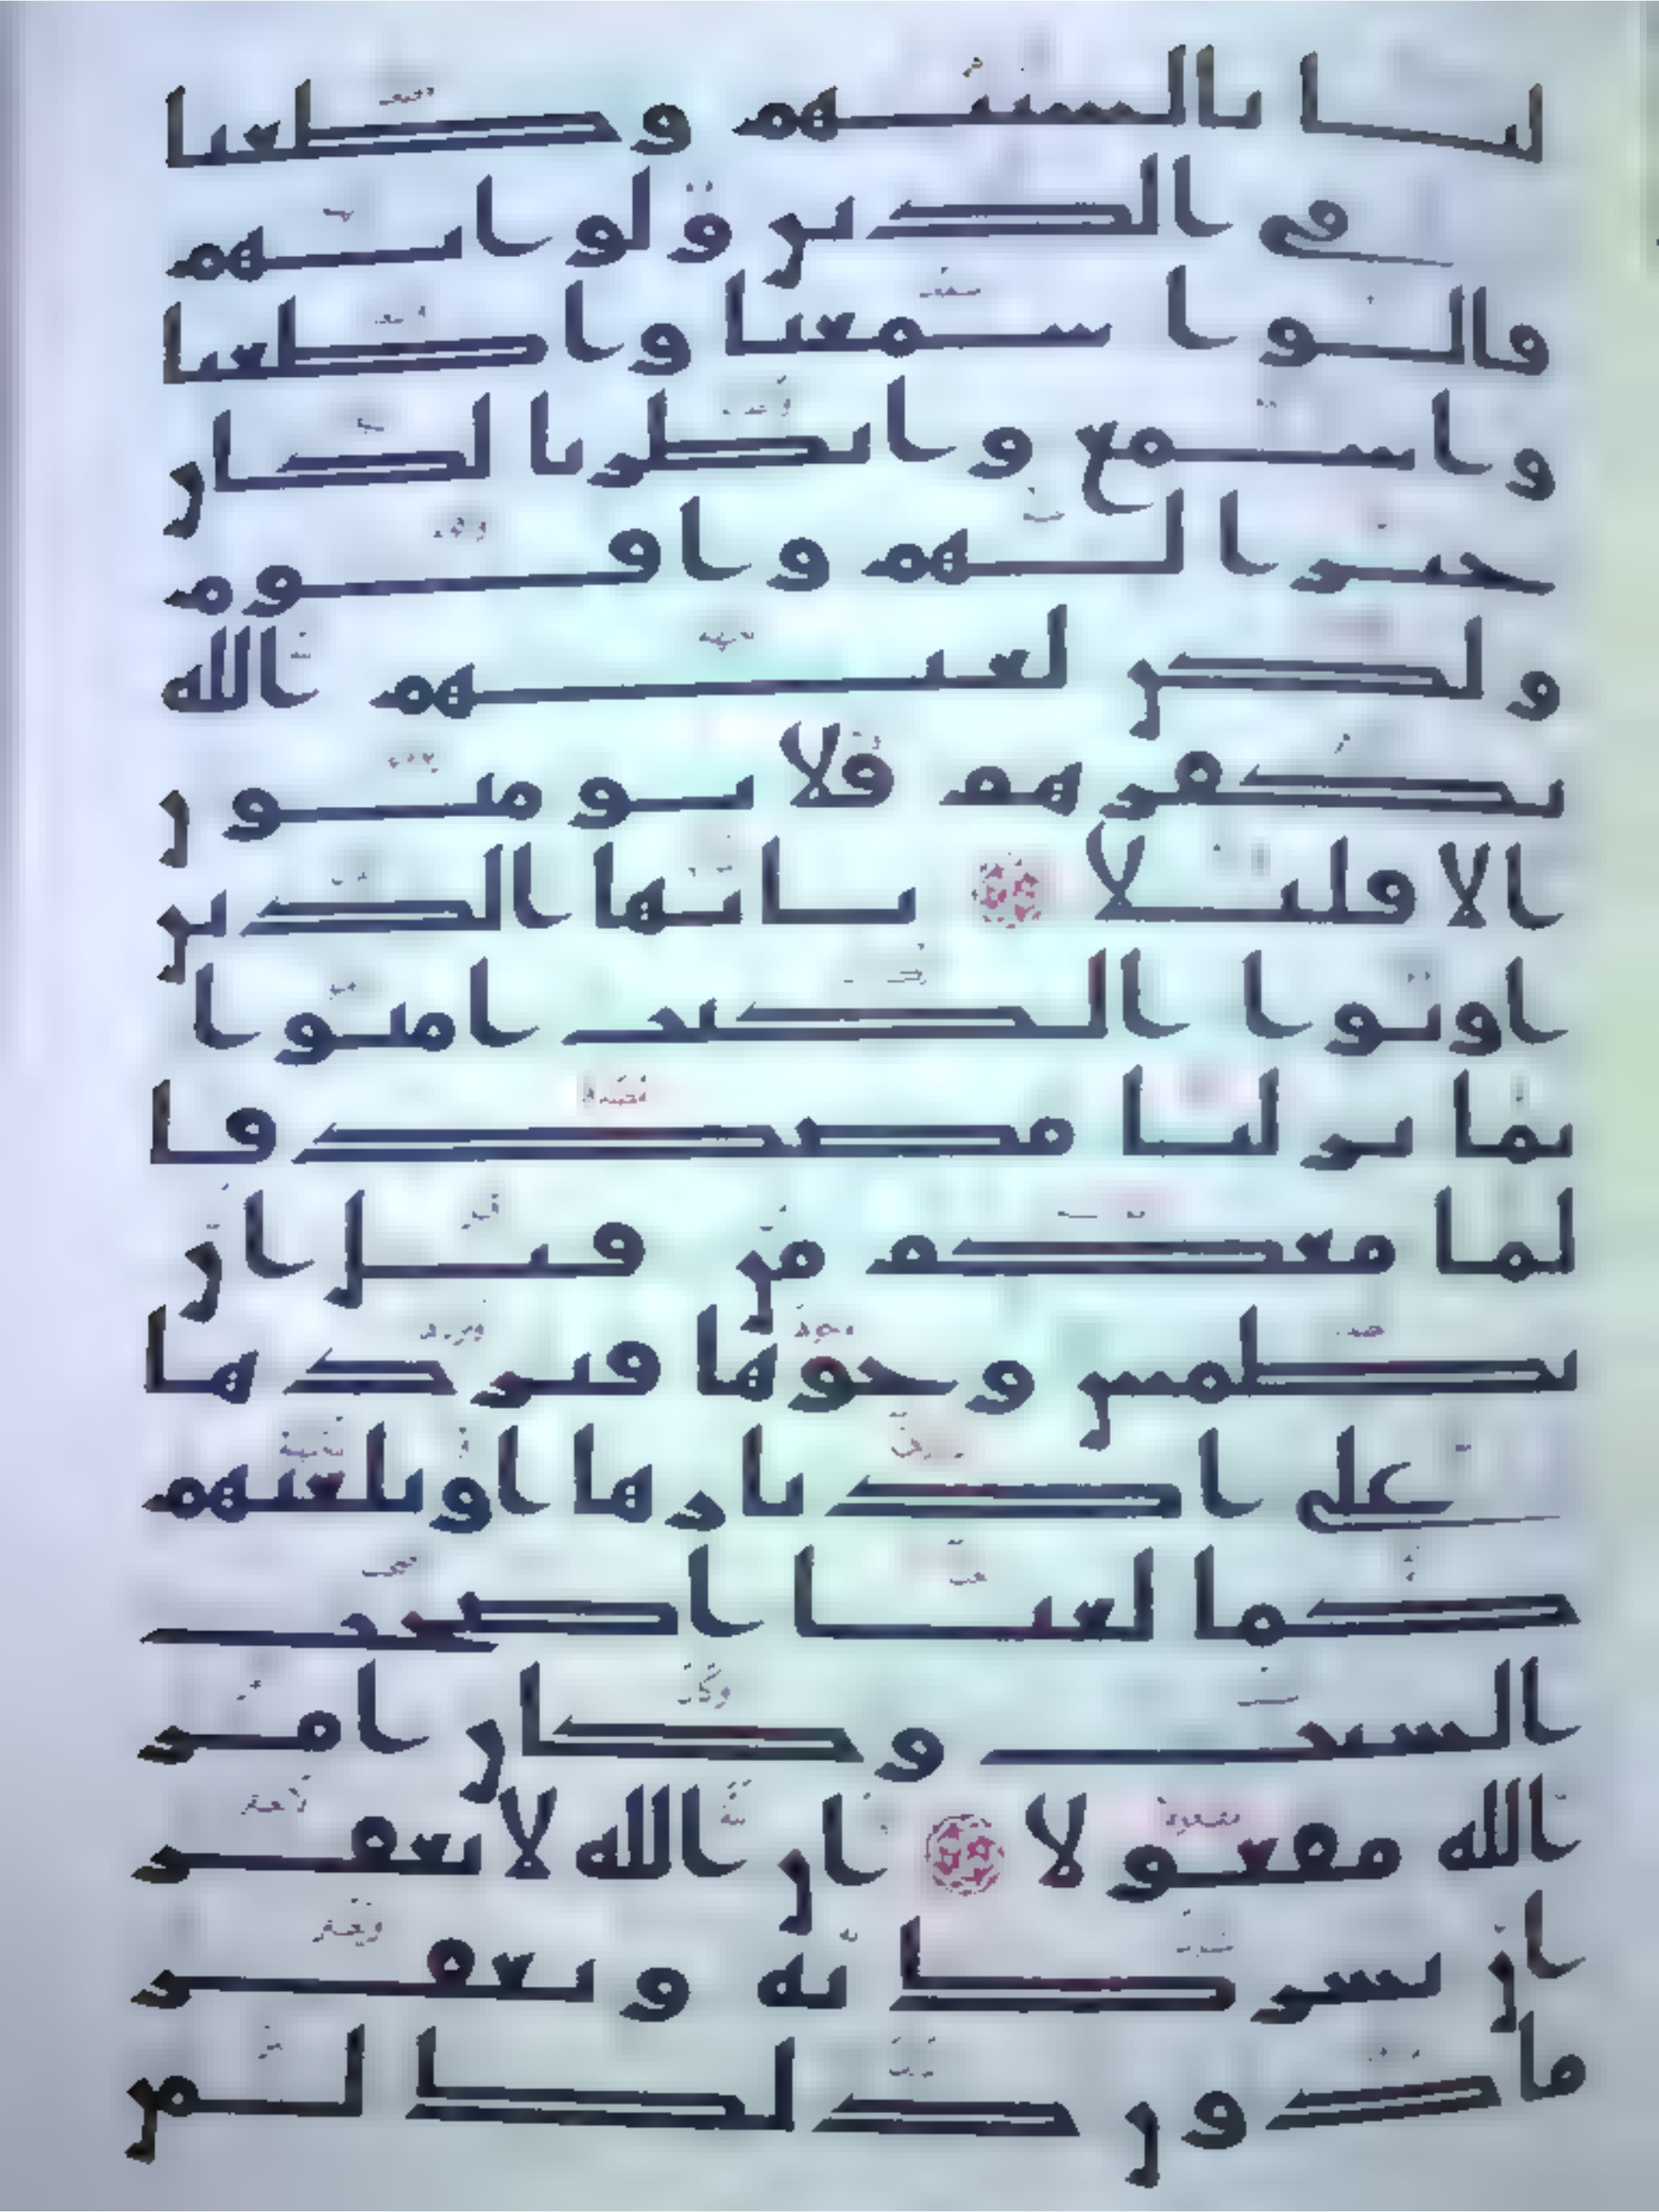 ليا بالسنتهم وطعنا
في الدين ولو انهم
قالوا سمعنا واطعنا
واسمع وانظرنا لكان
خيرا لهم واقوم
ولكن لعنهم الله
بكفرهم فلا يومنون
الا قليلا يايها الذين
اوتوا الكتب امنوا
بما نزلنا مصدقا
لما معكم من قبل ان
نطمس وجوها فنردها
على ادبارها او نلعنهم
كما لعنا اصحب
السبت وكان امر
الله مفعولا ان الله لا يغفر
ان يشرك به ويغفر
ما دون ذلك لمن